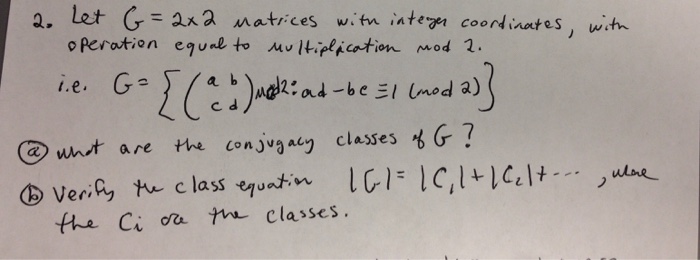 2. Let G = 2x2 matrices with integer coordinates, with
operation equal to multiplication mod 2.
i.e. G = { ( a b
c d ) mod 2 : ad - bc ≡ 1 (mod 2) }
(a) what are the conjugacy classes of G ?
(b) Verify the class equation |G| = |C₁| + |C₂| + ··· , where
the Ci are the classes.